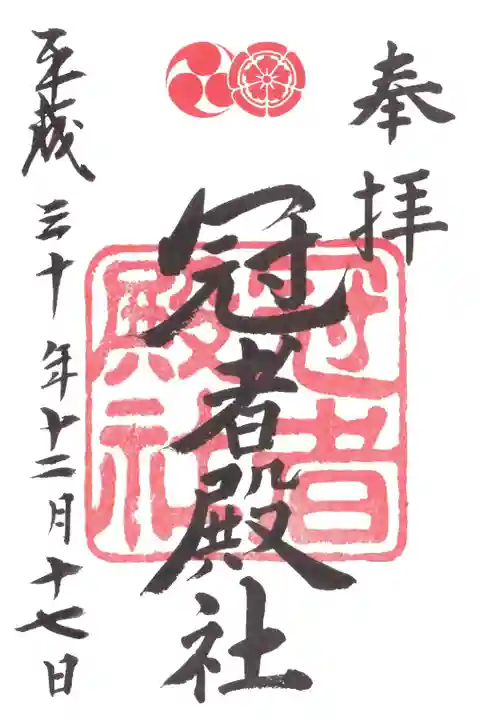 奉拝
冠者殿社
冠者
殿社
平成三十年十二月十七日